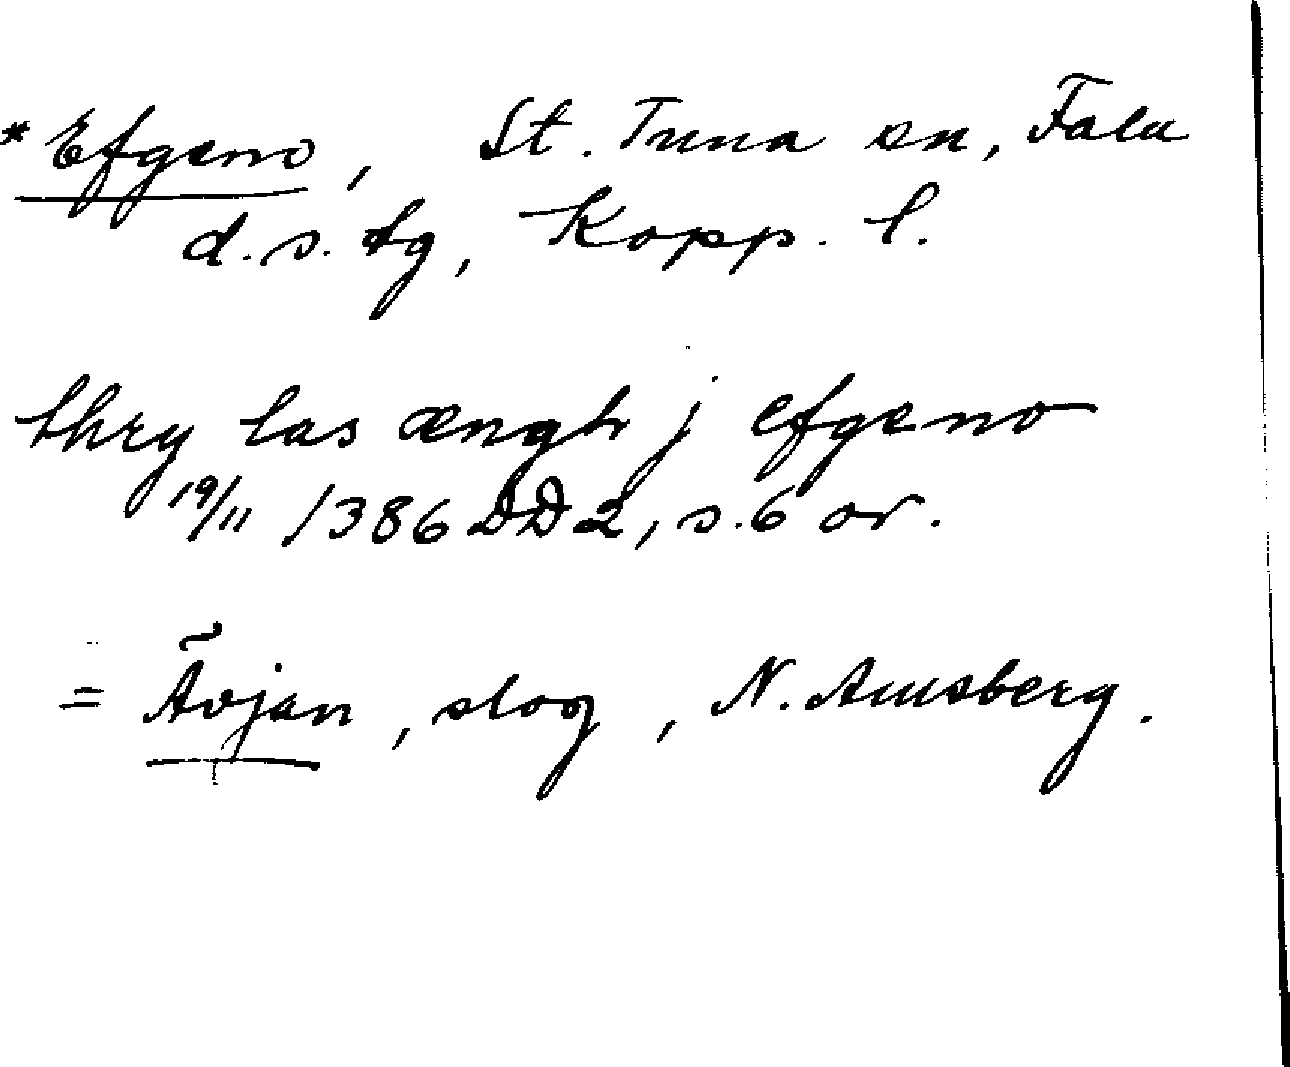 *Efgeno, St. Tuna sn, Falu
d.s. tg, Kopp. l.
thry las ængh j efgeno
19/11 1386 DD 2, s. 6 or.
= Ävjan, slog, N. Amsberg.